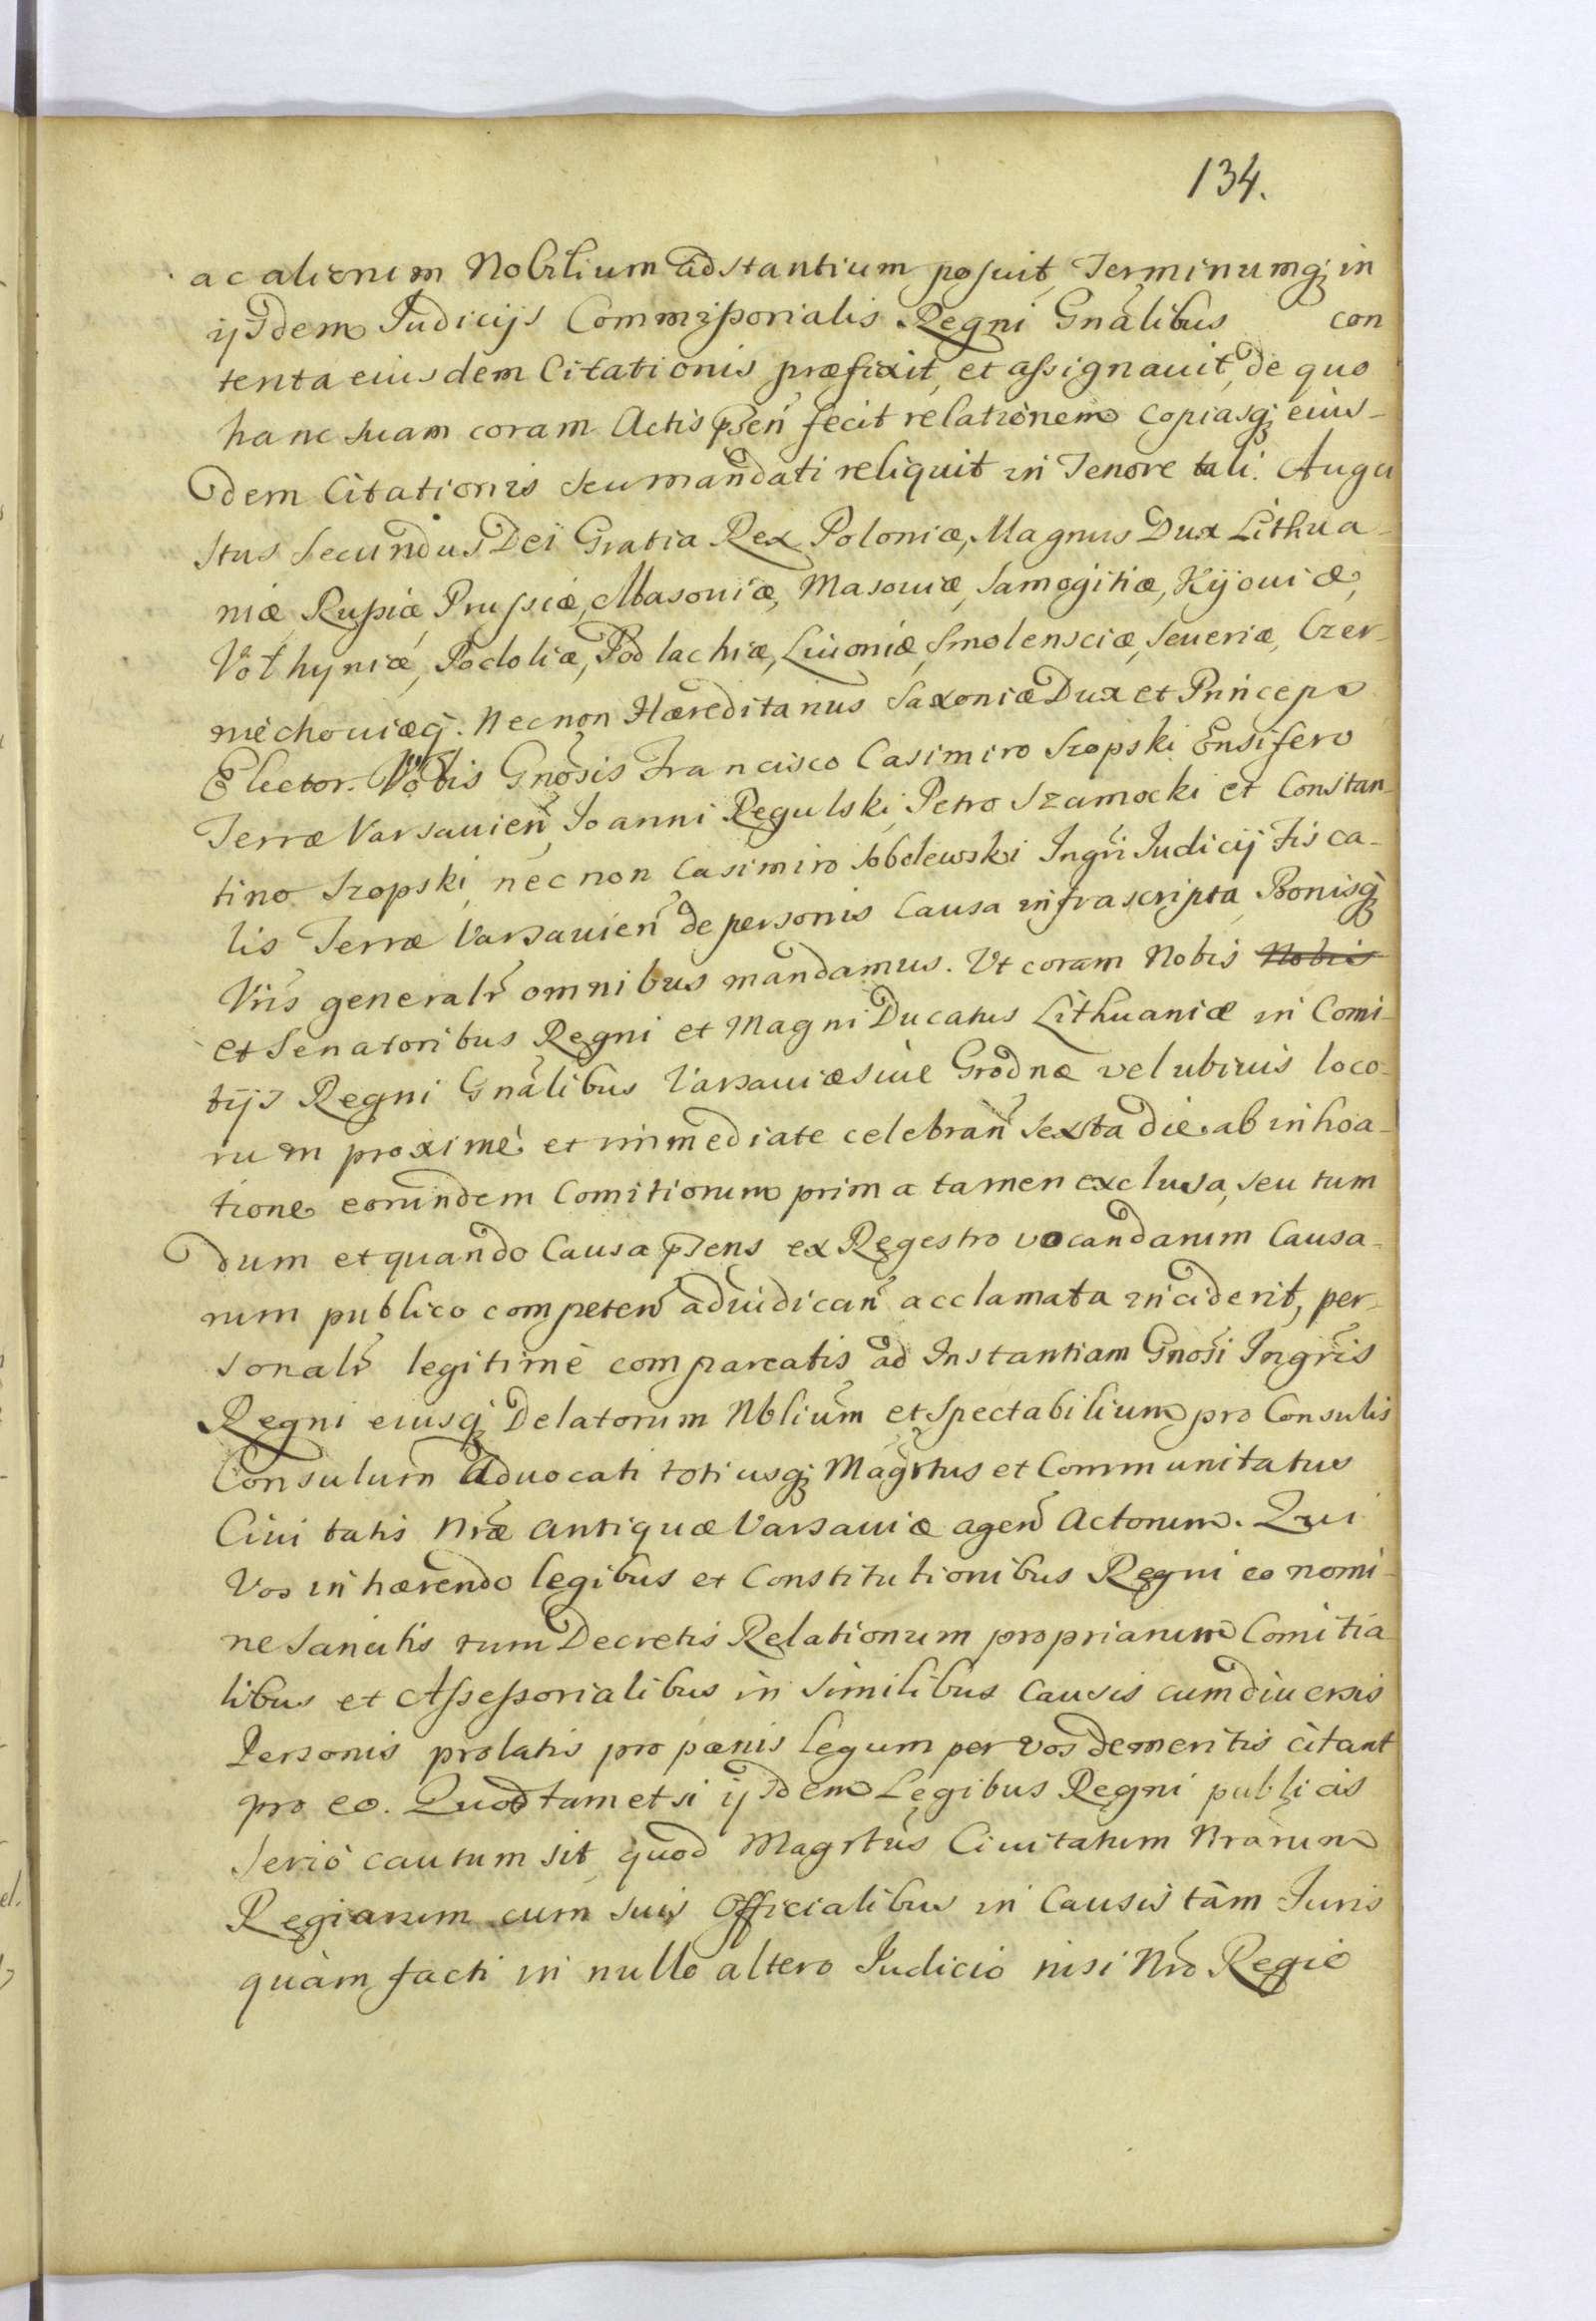 134.
ac alienum Nobilium adstantium posuit, Terminumq; in
ijsdem Judicijs Commissorialis Regni Gnalibus con
tenta eiusdem Citationis præfixit, et assignauit, de quo
hanc suam coram Actis psen fecit relationem Copiasq; eius-
dem Citationis seu mandati reliquit in Tenore tali. Augu
stus Secundus Dei Gratia Rex Poloniæ, Magnus Dux Lithua-
niæ Russiæ Prussiæ, Masouiæ, Masouiæ, Samogitiæ, Kijouiæ,
Volhyniæ, Podoliæ, Podlachiæ, Liuoniæ, Smolensciæ, Seueriæ, Czer-
niechouiæq. Necnon Hæreditarius Saxoniæ Dux et Princeps
Elector. Vobis Gnosis Francisco Casimiro Szopski Ensifero
Terræ Varsauien, Joanni Regulski, Petro Szamocki et Constan-
tino Szopski, necnon Casimiro Sobolewski Ingri Judicij Fisca-
lis Terræ Varsauien de personis Causa infrascripta, Bonisq;
Vris generalr omnibus mandamus. Vt coram Nobis Nobis
et Senatoribus Regni et Magni Ducatus Lithuaniæ in Comi-
tijs Regni Gnalibus Varsauiæ siue Grodnæ vel ubiuis loco-
rum proximè et immediate celebran sexta die ab inhoa-
tione eorundem Comitiorum prima tamen exclusa, seu tum
dum et quando Causa psens ex Regestro vocandarum Causa-
rum publico competen adiudican acclamata inciderit, per-
sonalr legitimè compareatis ad Instantiam Gnosi Ingris
Regni eiusq; Delatorum Nblium et Spectabilium pro Consulis
Consulum Aduocati totiusq; Magrtus et Communitatus
Ciuitatis Nræ Antiquæ Varsauiæ agen Actorum. Qui
Vos inhærendo legibus et Constitutionibus Regni eo nomi-
ne sancitis tum Decretis Relationum propriarum Comitia
libus et Assessorialibus in similibus Causis cum diuersis
Personis prolatis pro pænis legum per vos demeritis citant
pro eo. Quod tametsi ijsdem Legibus Regni publicis
seriò cautum sit, quod Magrtus Ciuitatum Nrarum
Regiarum cum suis Officialibus in Causis tàm Juris
quàm facti in nullo altero Judicio nisi Nro Regio